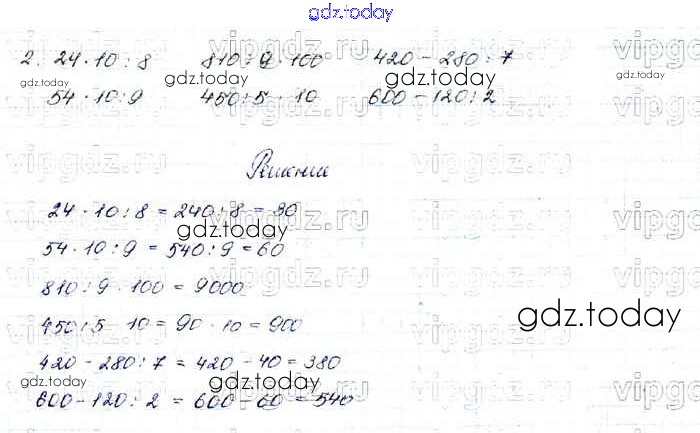 gdz.today
2. 24 · 10 : 8 810 : 9 · 100 420 - 280 : 7
54 · 10 : 9 450 : 5 · 10 600 - 120 : 2
Решение
24 · 10 : 8 = 240 : 8 = 30
54 · 10 : 9 = 540 : 9 = 60
810 : 9 · 100 = 9000
450 : 5 · 10 = 90 · 10 = 900
420 - 280 : 7 = 420 - 40 = 380
600 - 120 : 2 = 600 - 60 = 540
gdz.today
gdz.today
gdz.today
gdz.today
gdz.today
gdz.today
gdz.today
gdz.today
vipgdz.ru
vipgdz.ru
vipgdz.ru
vipgdz.ru
vipgdz.ru
vipgdz.ru